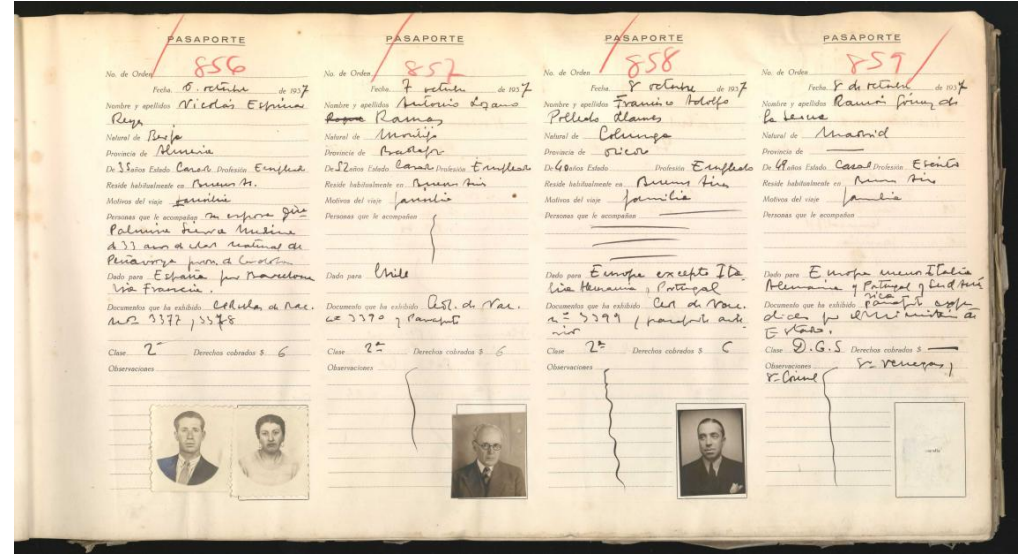 PASAPORTE
856
No. de Orden
Fecha 6 octubre de 1937
Nombre y apellidos Nicolás Espinar
Reyes
Natural de Berja
Provincia de Almeria
De 35 años Estado Casado Profesión Empleado
Reside habitualmente en Buenos A.
Motivos del viaje familia
Personas que le acompañan su esposa
Palmira Sierra Medina
d 33 anos de edad natural de
prov. d Cordoba
Dado para España por Barcelona
via Francia.
Documentos que ha exhibido Cédulas de Nac.
nos 3377, 3378
Clase 2ª Derechos cobrados $ 6
Observaciones
PASAPORTE
857
No. de Orden
Fecha 7 octubre de 1937
Nombre y apellidos Antonio Lozano
Ramas
Natural de Montijo
Provincia de Badajoz
De 52 años Estado Casado Profesión Empleado
Reside habitualmente en Buenos Aires
Motivos del viaje familia
Personas que le acompañan
Dado para Chile
Documento que ha exhibido Céd. de Nac.
nº 3390 y Pasaporte
Clase 2ª Derechos cobrados $ 6
Observaciones
PASAPORTE
858
No. de Orden
Fecha 8 octubre de 1937
Nombre y apellidos Francisco Adolfo
Polledo Llames
Natural de Colunga
Provincia de Oviedo
De 40 años Estado Profesión Empleado
Reside habitualmente en Buenos Aires
Motivos del viaje familia
Personas que le acompañan
Dado para Europa excepto Ita
lia Alemania y Portugal
Documentos que ha exhibido Ced de Nac.
nº 3399 y pasaporte ante
rior
Clase 2ª Derechos cobrados $ 6
Observaciones
PASAPORTE
859
No. de Orden
Fecha 8 de octubre de 1937
Nombre y apellidos Ramón Gómez de
la Serna
Natural de Madrid
Provincia de
De 48 años Estado Casado Profesión Escritor
Reside habitualmente en Buenos Aires
Motivos del viaje familia
Personas que le acompañan
Dado para Europa menos Italia
Alemania y Portugal y Sud Amé
rica
Documentos que ha exhibido pasaporte expe
dido por el Ministerio de
Estado.
Clase D.G.S. Derechos cobrados $
Observaciones Sr Venegas y
Sr Consul